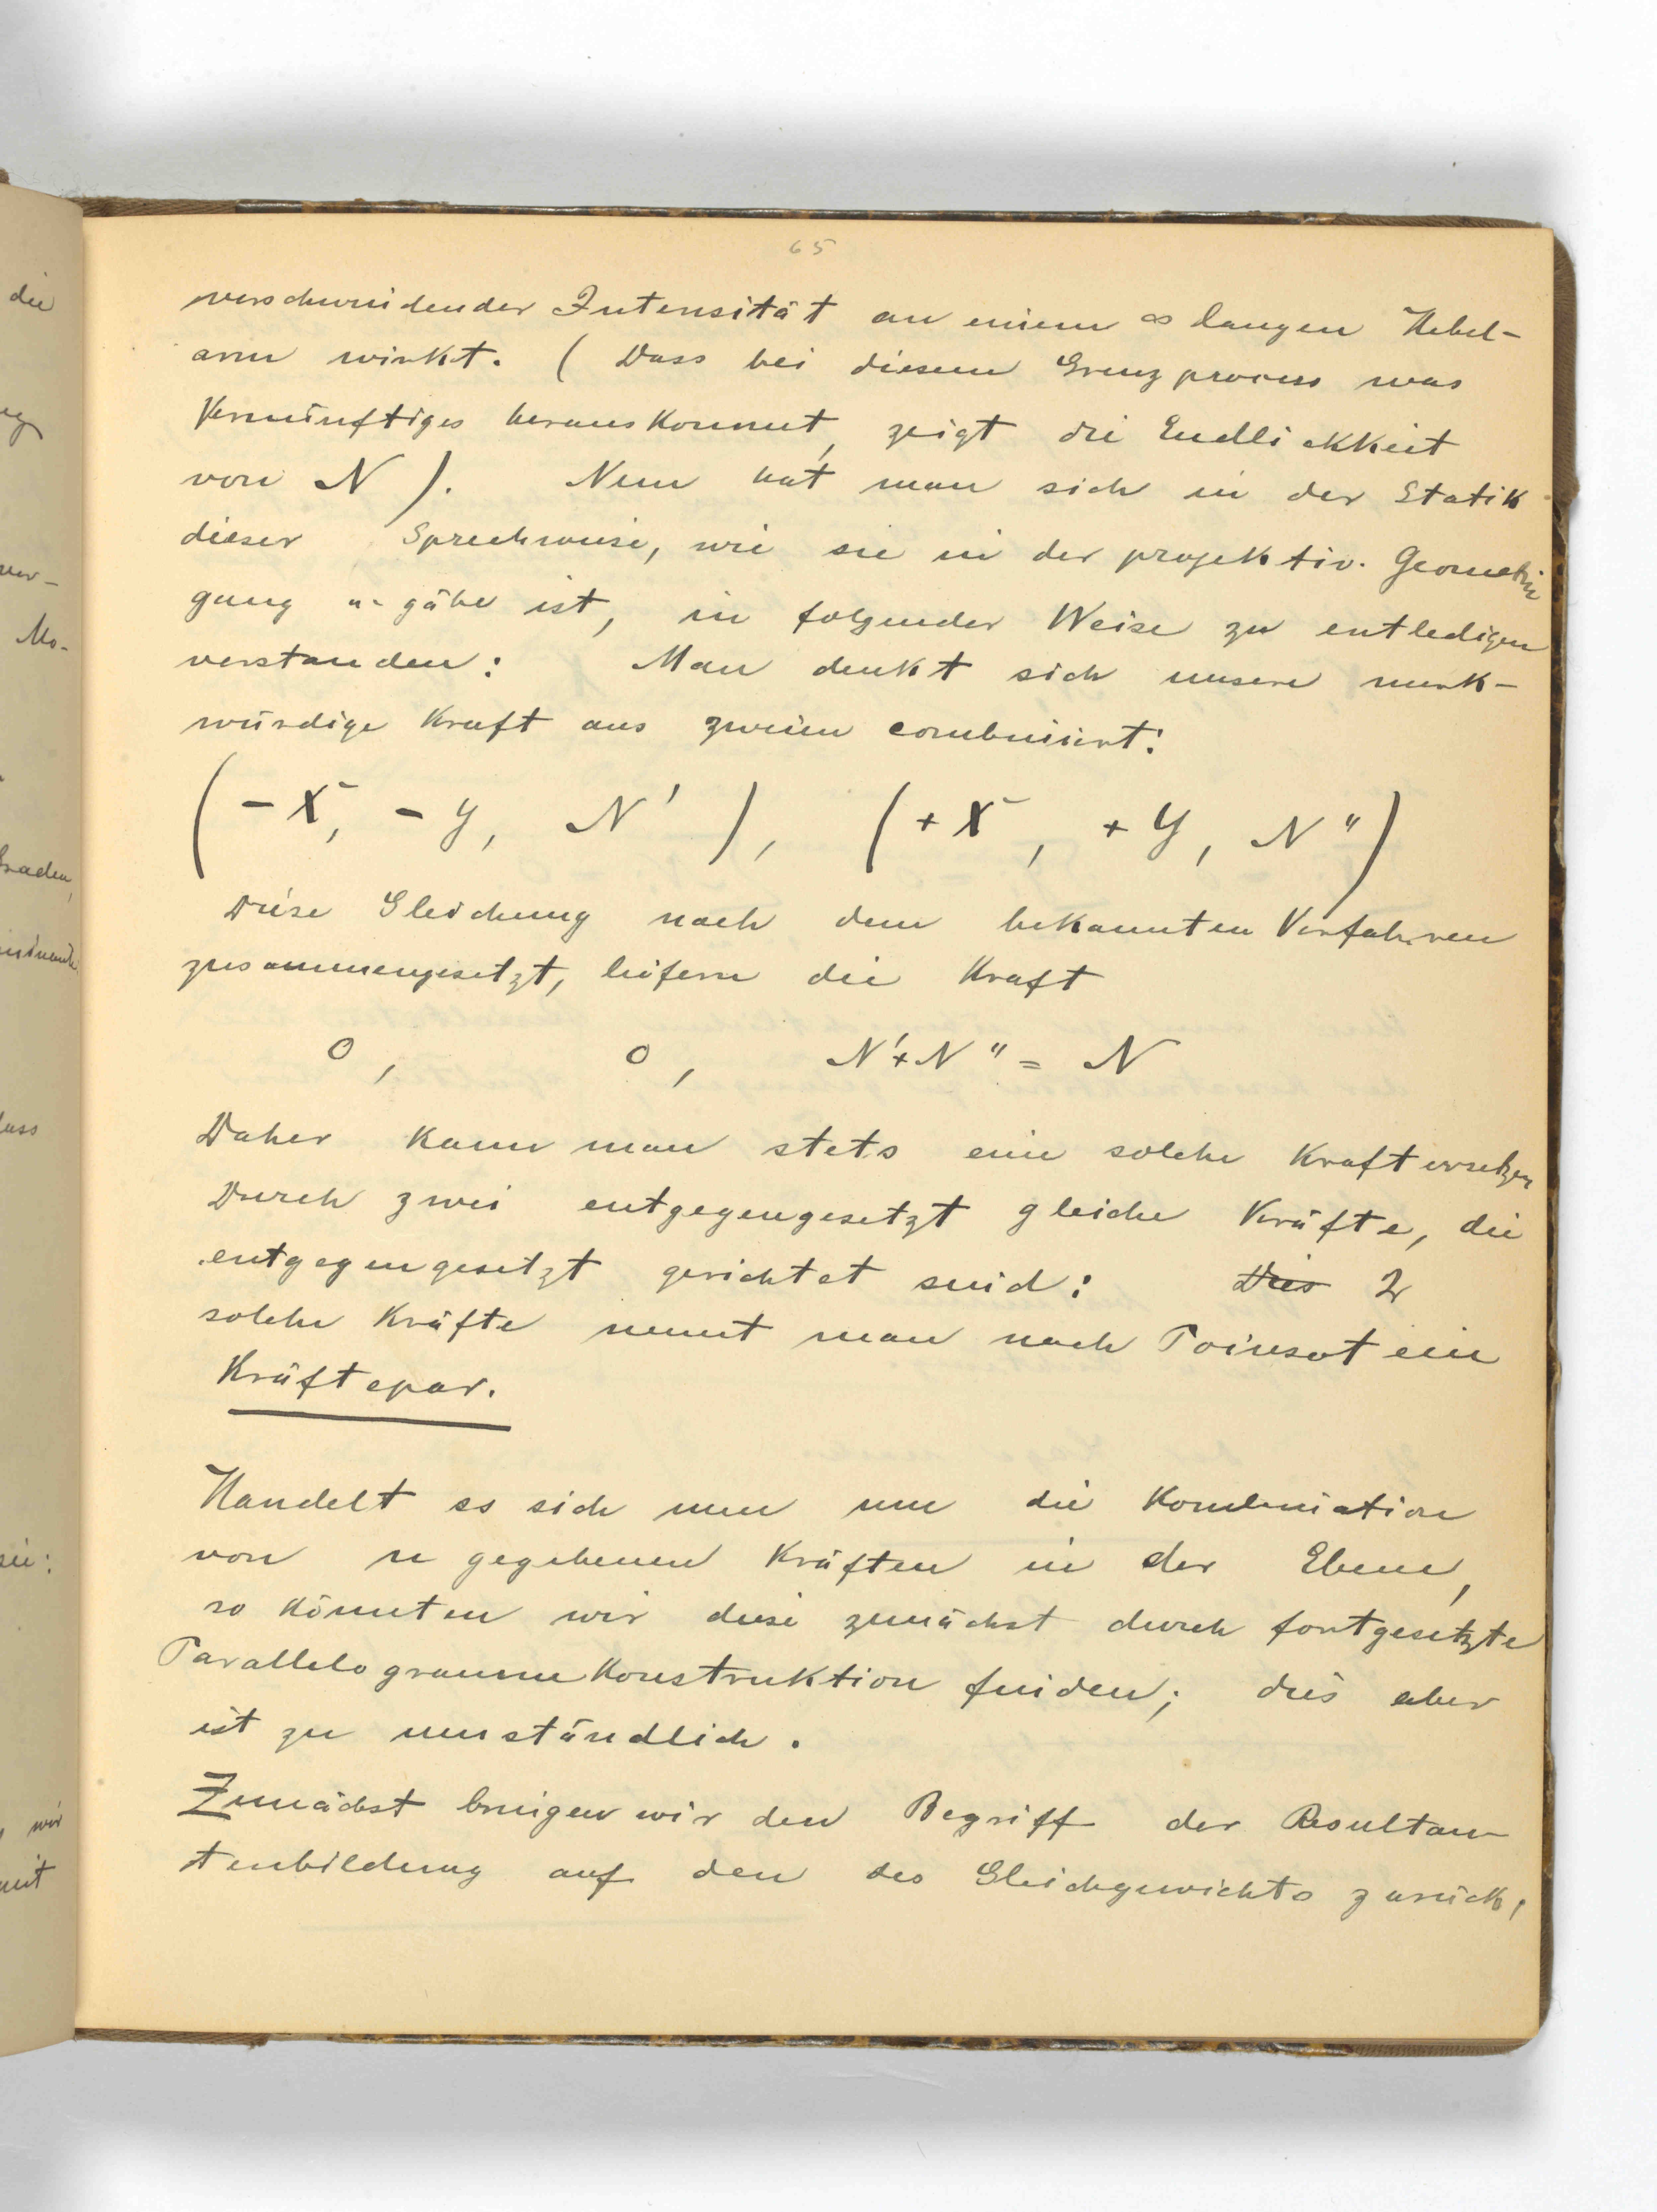 65
verschwindender Intensität an einem ∞ langen Hebel-
arm wirkt. ( Dass bei diesem Grenzprocess was
Vernünftiges herauskommt, zeigt die Endlichkeit
von N ). Nun hat man sich in der Statik
dieser Sprechweise, wie sie in der projektiv. Geometrie
gang u. gäbe ist, in folgender Weise zu entledigen
verstanden: Man denkt sich unsere merk-
würdige Kraft aus zweien combiniert:
(-X, -Y, N'), (+X, +Y, N")
Diese Gleichung nach dem bekannten Verfahren
zusammengesetzt, liefern die Kraft
0, 0, N'+N" = N
Daher kann man stets eine solche Kraft ersetzen
Durch zwei entgegengesetzt gleiche Kräfte, die
entgegengesetzt gerichtet sind: Dies 2
solche Kräfte nennt man nach Poinsot ein
Kräftepar.
Handelt es sich nun um die Kombination
von n gegebenen Kräften in der Ebene,
so könnten wir diese zunächst durch fortgesetzte
Parallelogramm Konstruktion finden; dies aber
ist zu umständlich.
Zunächst bringen wir den Begriff der Resultan-
tenbildung auf den des Gleichgewichts zurück,
die
ver-
Mo-
Graden,
dass
sie:
, wir
mit